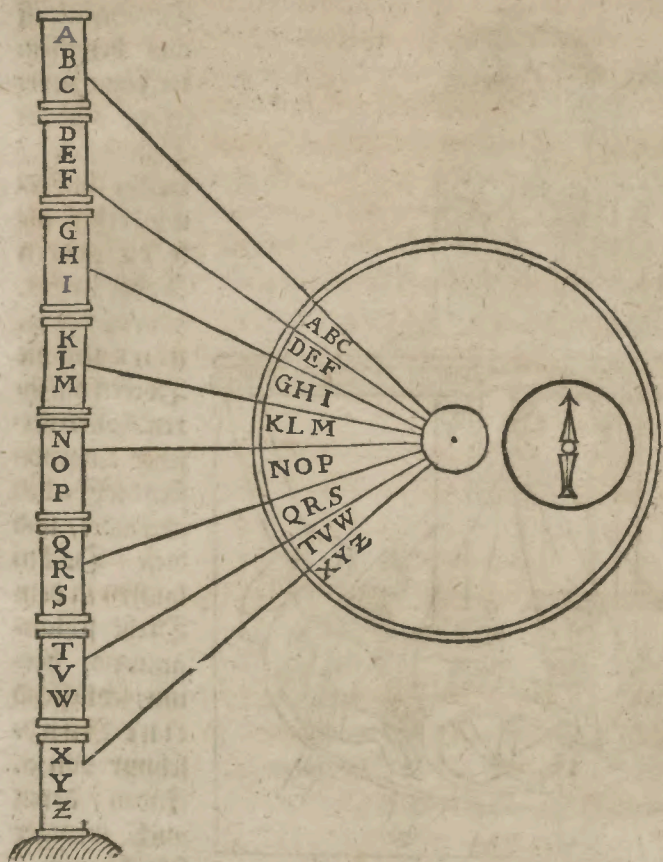 A
B
C
D
E
F
G
H
I
K
L
M
N
O
P
Q
R
S
T
V
W
X
Y
Z
ABC
DEF
GHI
KLM
NOP
QRS
TVW
XYZ